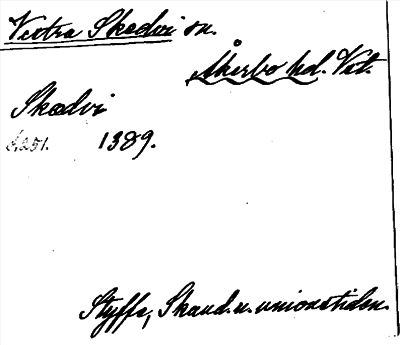 Vestra Skedvi sn.
Åkerbo hd. Vst.
Skædvi
s. 251. 1389.
Styffe, Skand. u. unionstiden.